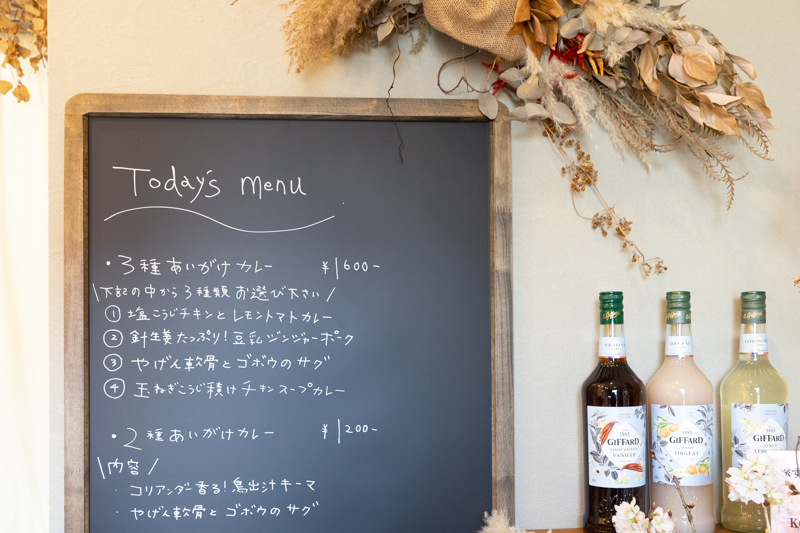 Today's menu
・3種あいがけカレー ¥1600-
\下記の中から3種類お選び下さい/
① 塩こうじチキンとレモントマトカレー
② 針生姜たっぷり!豆乳ジンジャーポーク
③ やげん軟骨とゴボウのサグ
④ 玉ねぎこうじ漬けチキンスープカレー
・2種あいがけカレー ¥1200-
\内容/
・コリアンダー香る!鳥出汁キーマ
・やげん軟骨とゴボウのサグ
GIFFARD
VANILLE
GIFFARD
ORGEAT
GIFFARD